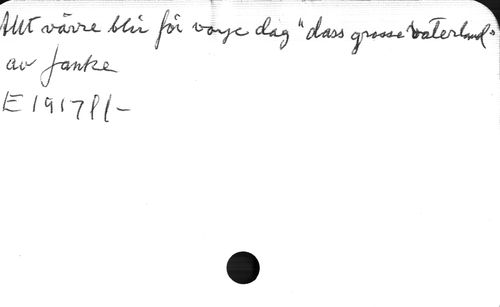 Allt värre blir för varje dag "dass grosse Vaterland"
av Janke
E 1917 ll-